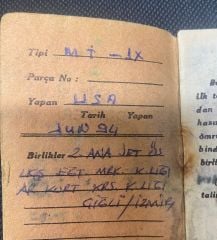 Tipi MI-1X
Parça No :
Yapan USA
Tarih Yapan
JUN 94
Birlikler 2 ANA JET ÜS
EĞT MRK. K.LIGI
AR KURT KRS. K.LIGI
ÇİĞLİ/İZMİR
Be
ilk t
dan
hası
ömrü
bind
birli
talip